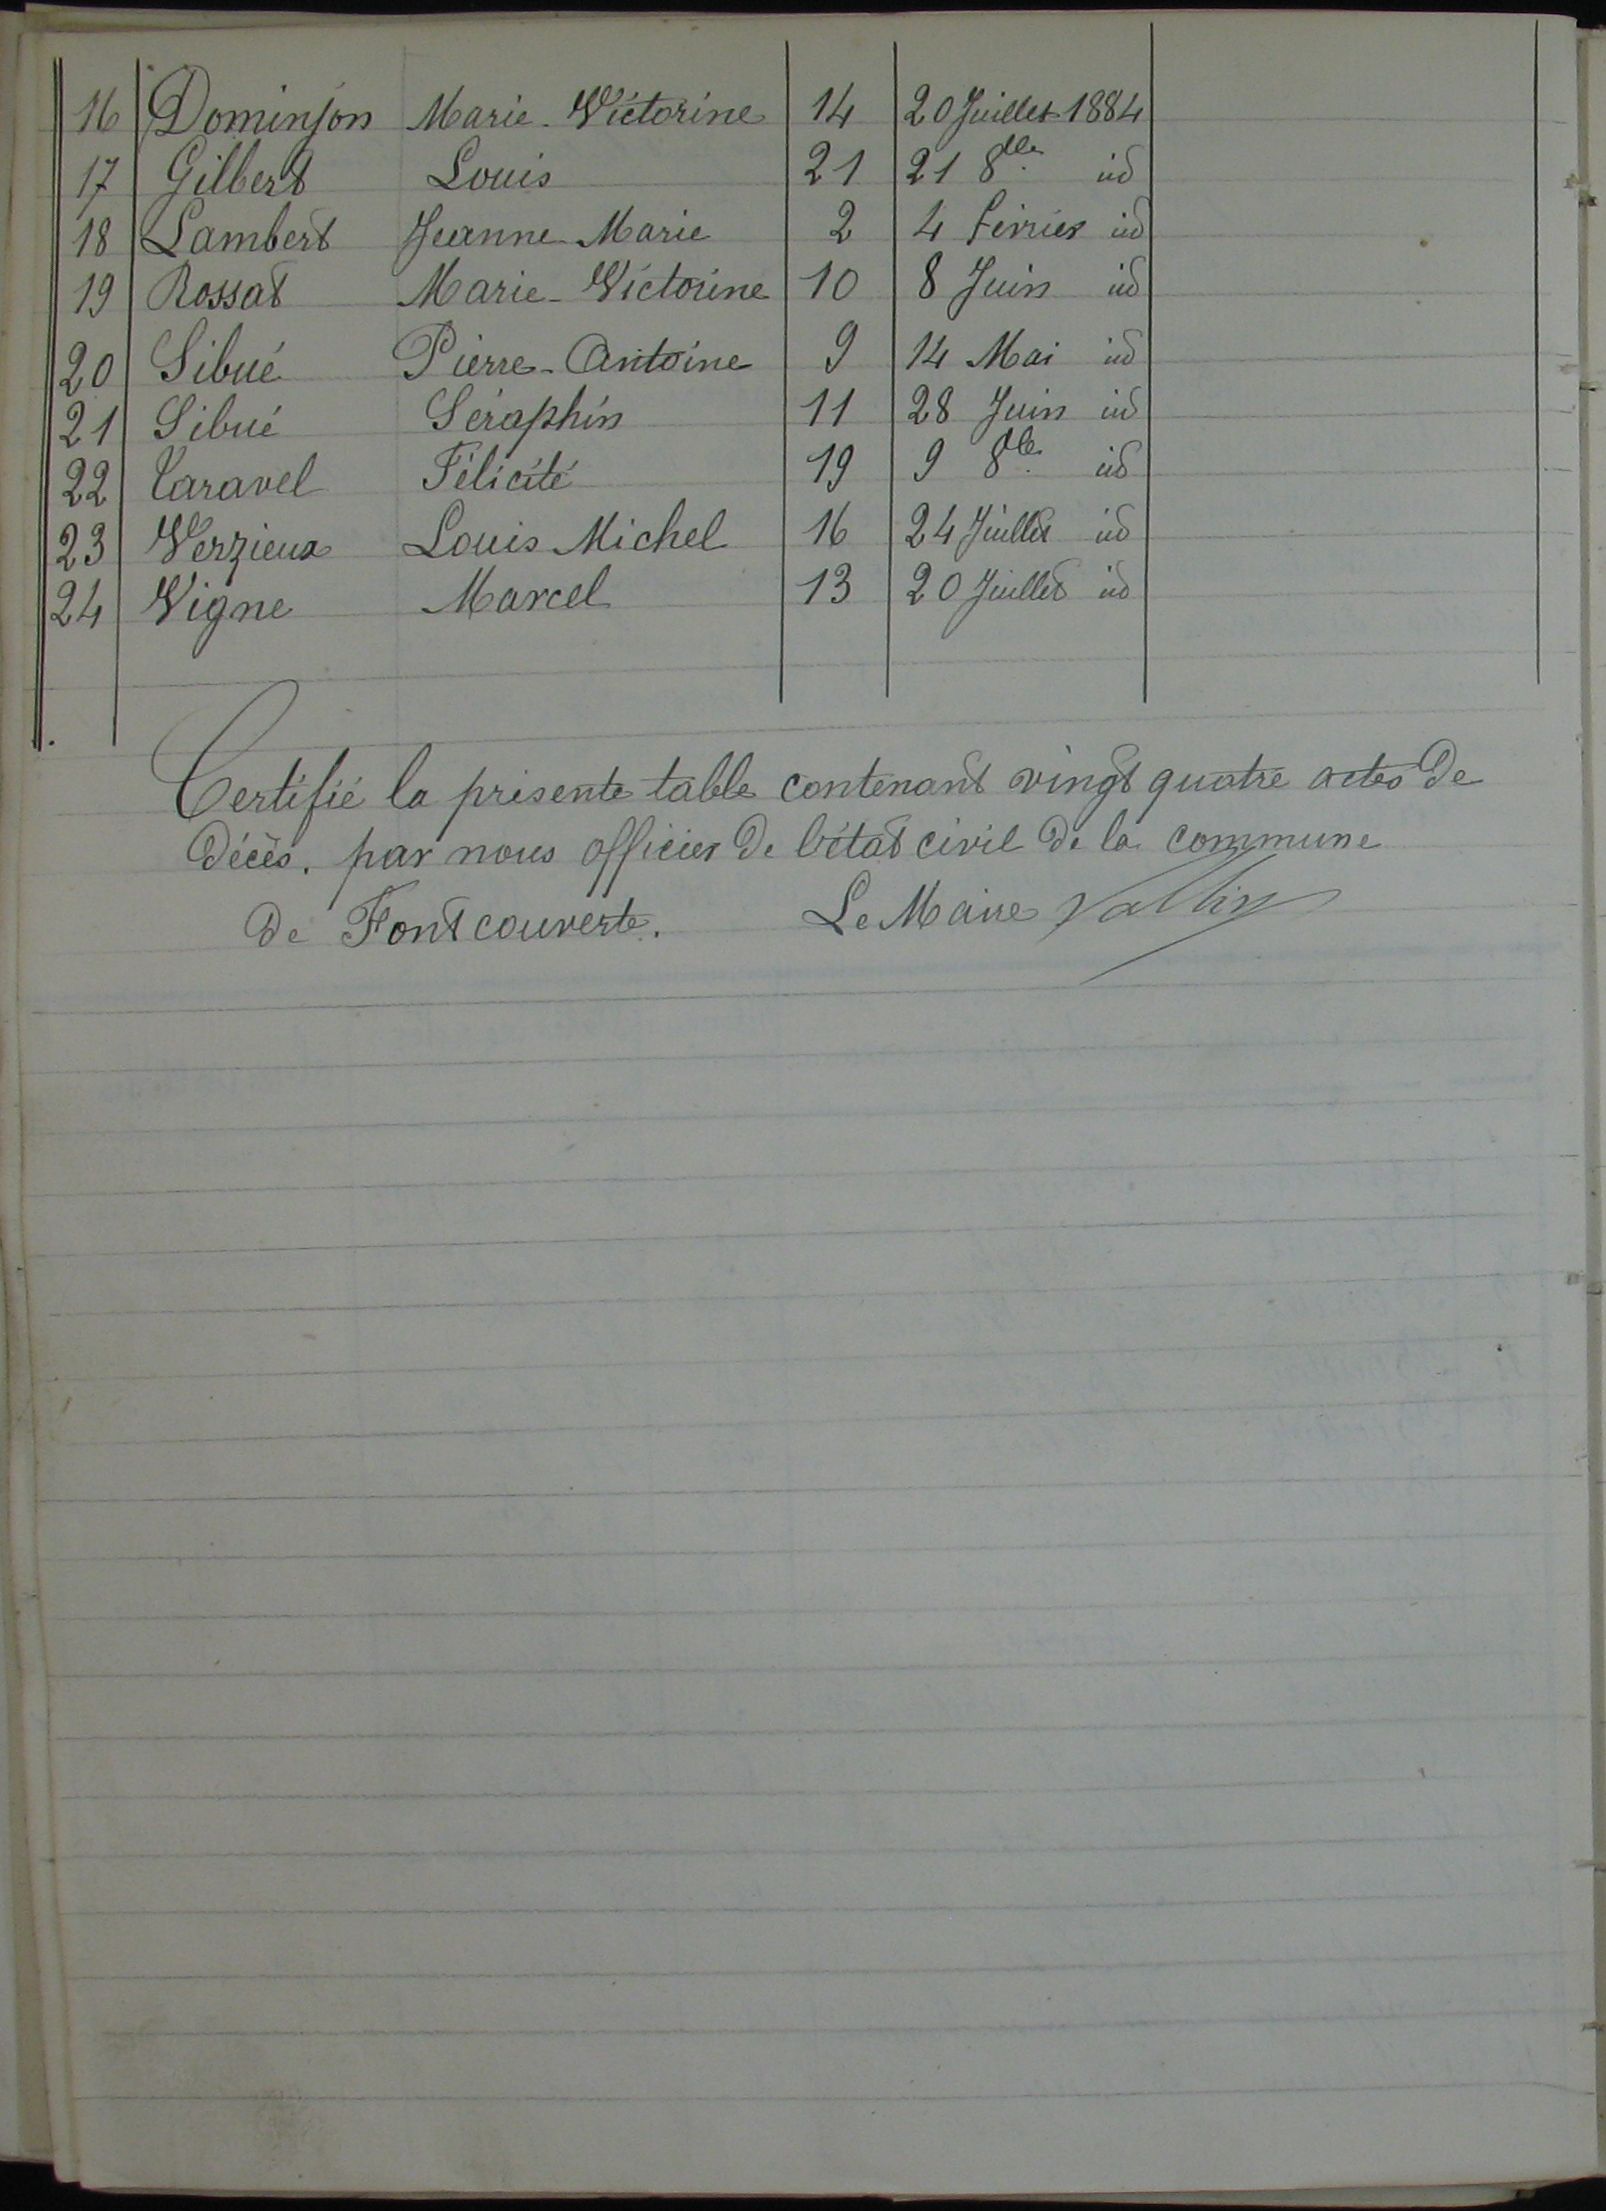 16 Dominjon Marie-Victorine 14 20 Juillet 1884
17 Gilbert Louis 21 21 8bre id
18 Lambert Jeanne Marie 2 4 Février id
19 Rossat Marie-Victorine 10 8 Juin id
20 Sibué Pierre-Antoine 9 14 Mai id
21 Sibué Séraphin 11 28 Juin id
22 Taravel Félicité 19 9 8bre id
23 Verzieux Louis Michel 16 24 Juillet id
24 Vigne Marcel 13 20 Juillet id
Certifié la présente table contenant vingt quatre actes de
décès. par nous officier de l'état civil de la commune
de Fontcouverte. Le Maire Vallin